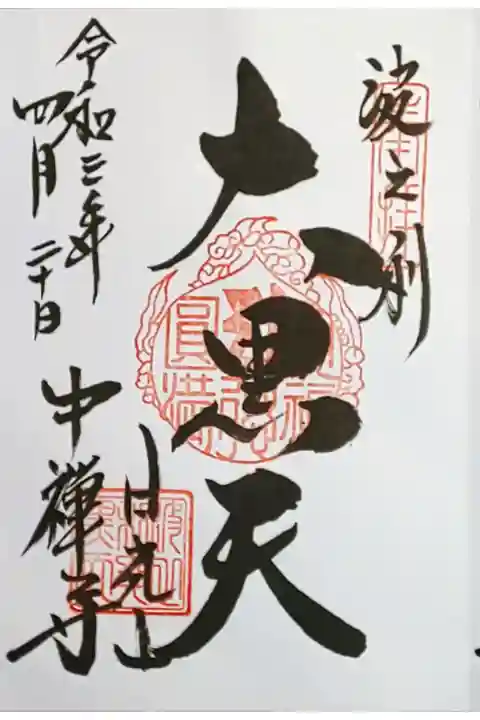 波之利
大黒天
日光山
中禅寺
令和三年
四月二十日